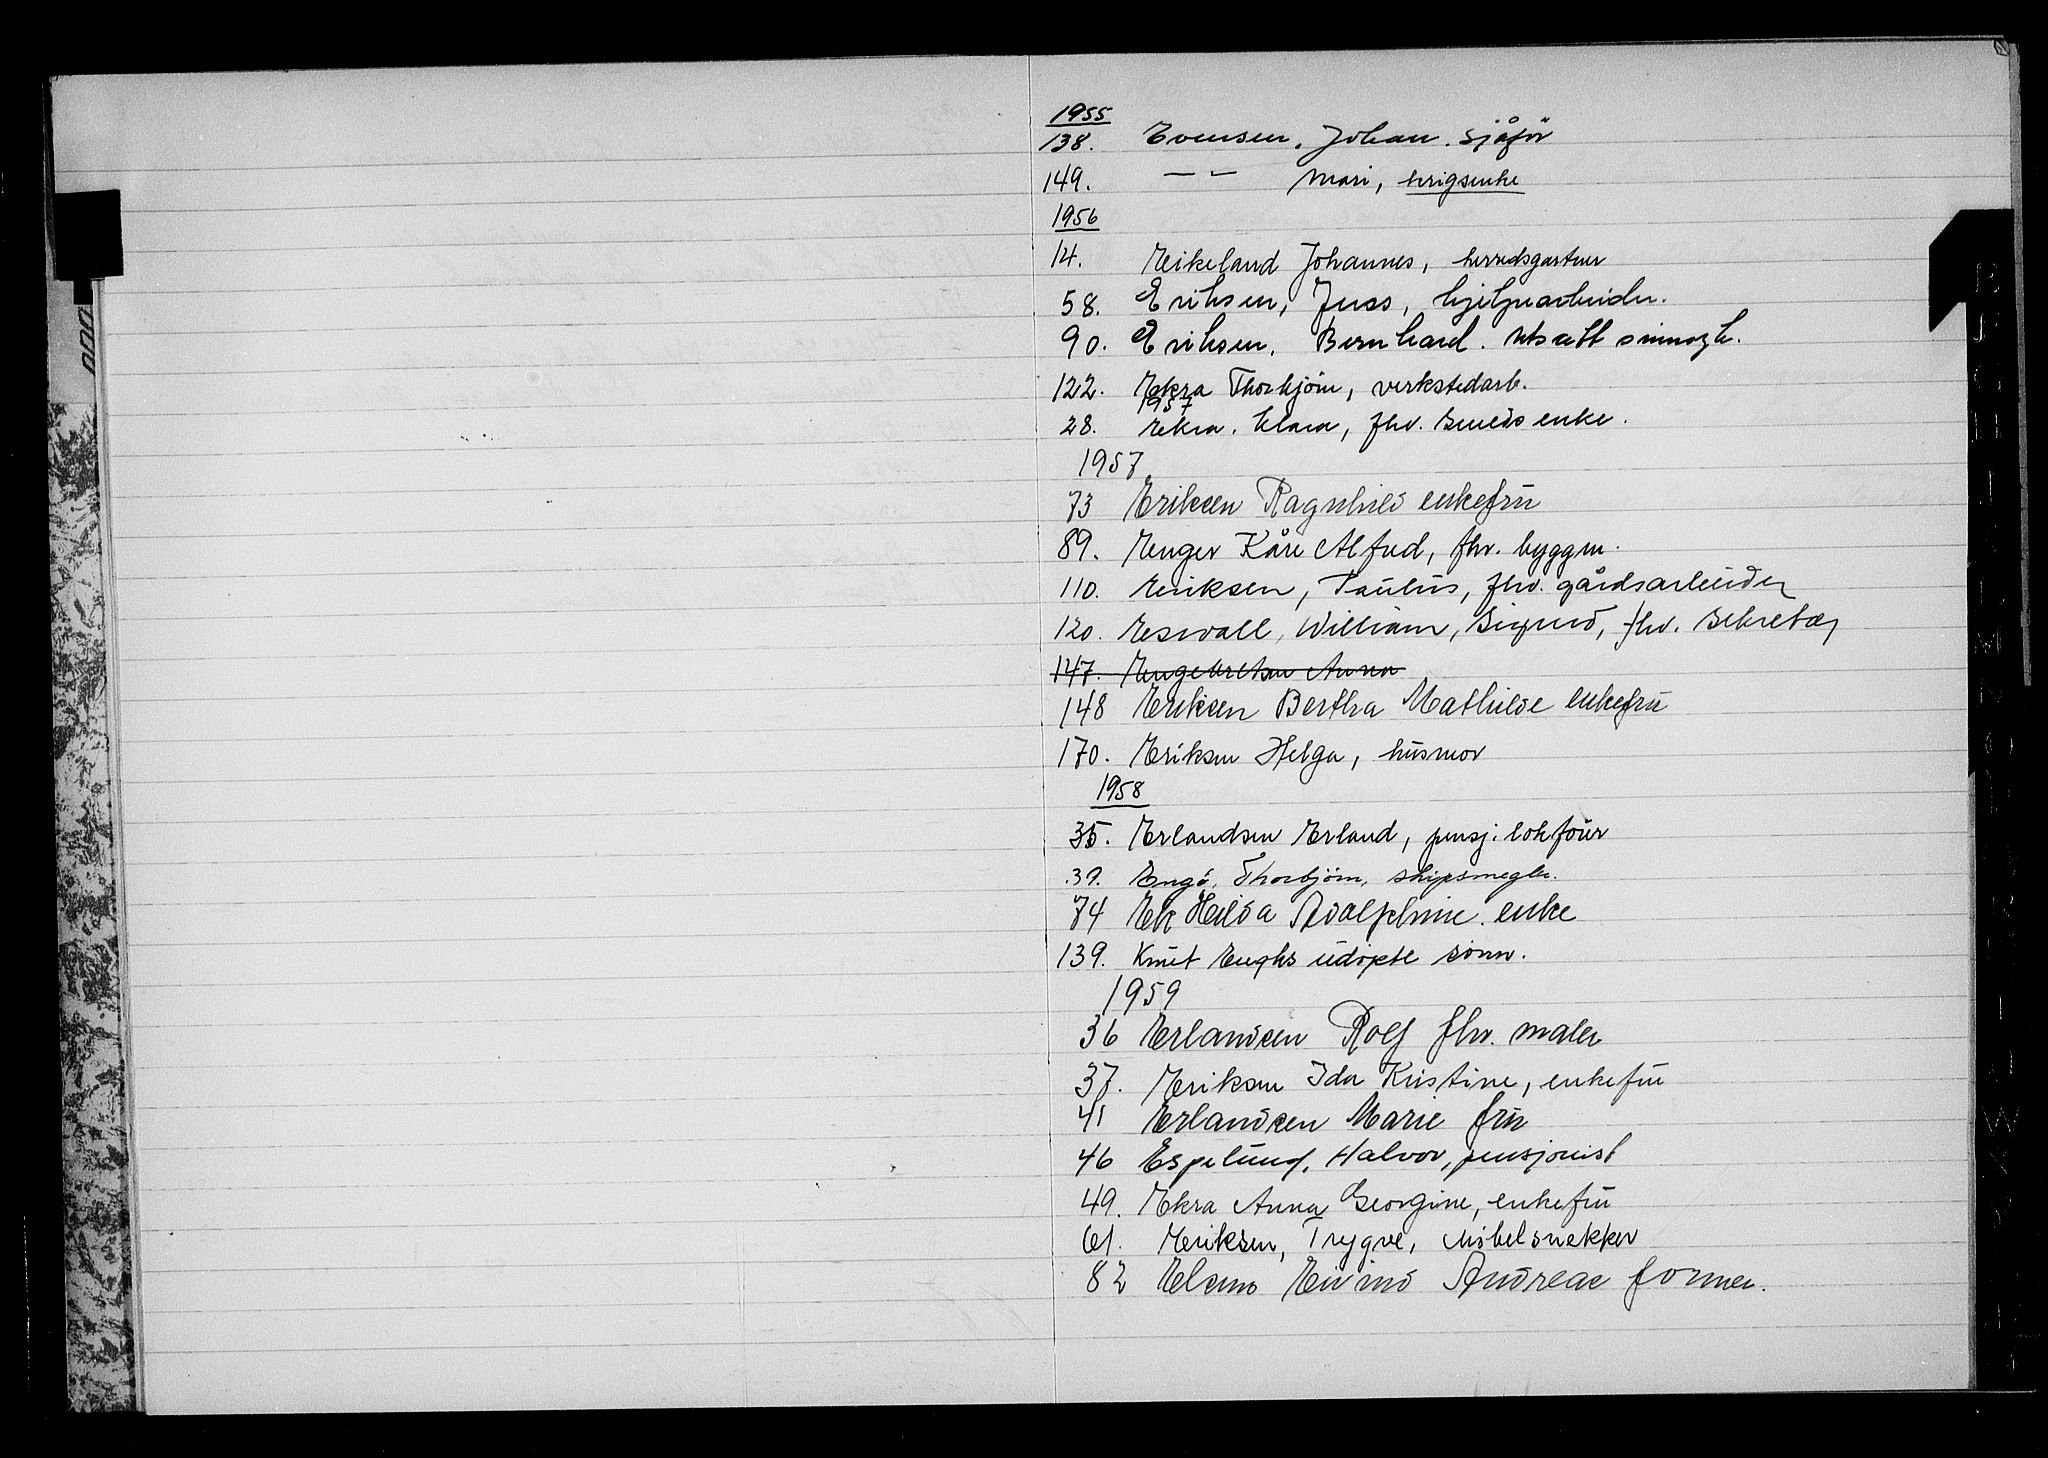 1955
138. Evensen, Johan. sjåfør
149. — " — Mari, krigsenke
1956
14. Eikeland Johannes, herredsgartner
58. Eriksen, Jens, hjelpearbeider.
90. Eriksen, Bernhard. utsatt
122. Ekra Thorbjørn, verkstedarb.
1957
28. Ekra. Klara, fhv. smeds enke.
1957
73 Eriksen Ragnhild enkefru
89. Enger Kåre Alfred, fhv. byggm.
110. Eriksen, Paulus, fhv. gårdsarbeider
120. Eswall, William, Sigurd, fhv. sekretær
147. Engebretsen Anna
148 Eriksen Bertha Mathilde enkefru
170. Eriksen Helga, husmor
1958
35. Erlandsen Erland, pensj. lokfører
39. Engø, Thorbjørn, skipsmegler.
74 Ek Hilda Adolphine. enke
139. Knut Enghs udøpte sønn.
1959
36 Erlandsen Rolf fhv. maler
37. Eriksen Ida Kristine, enkefru
41 Erlandsen Marie fru
46 Espelund, Halvor, pensjonist
49. Ekra Anna Georgine, enkefru
61. Eriksen, Trygve, Møbelsnekker
82 Elsmo Eivind Andreas former.